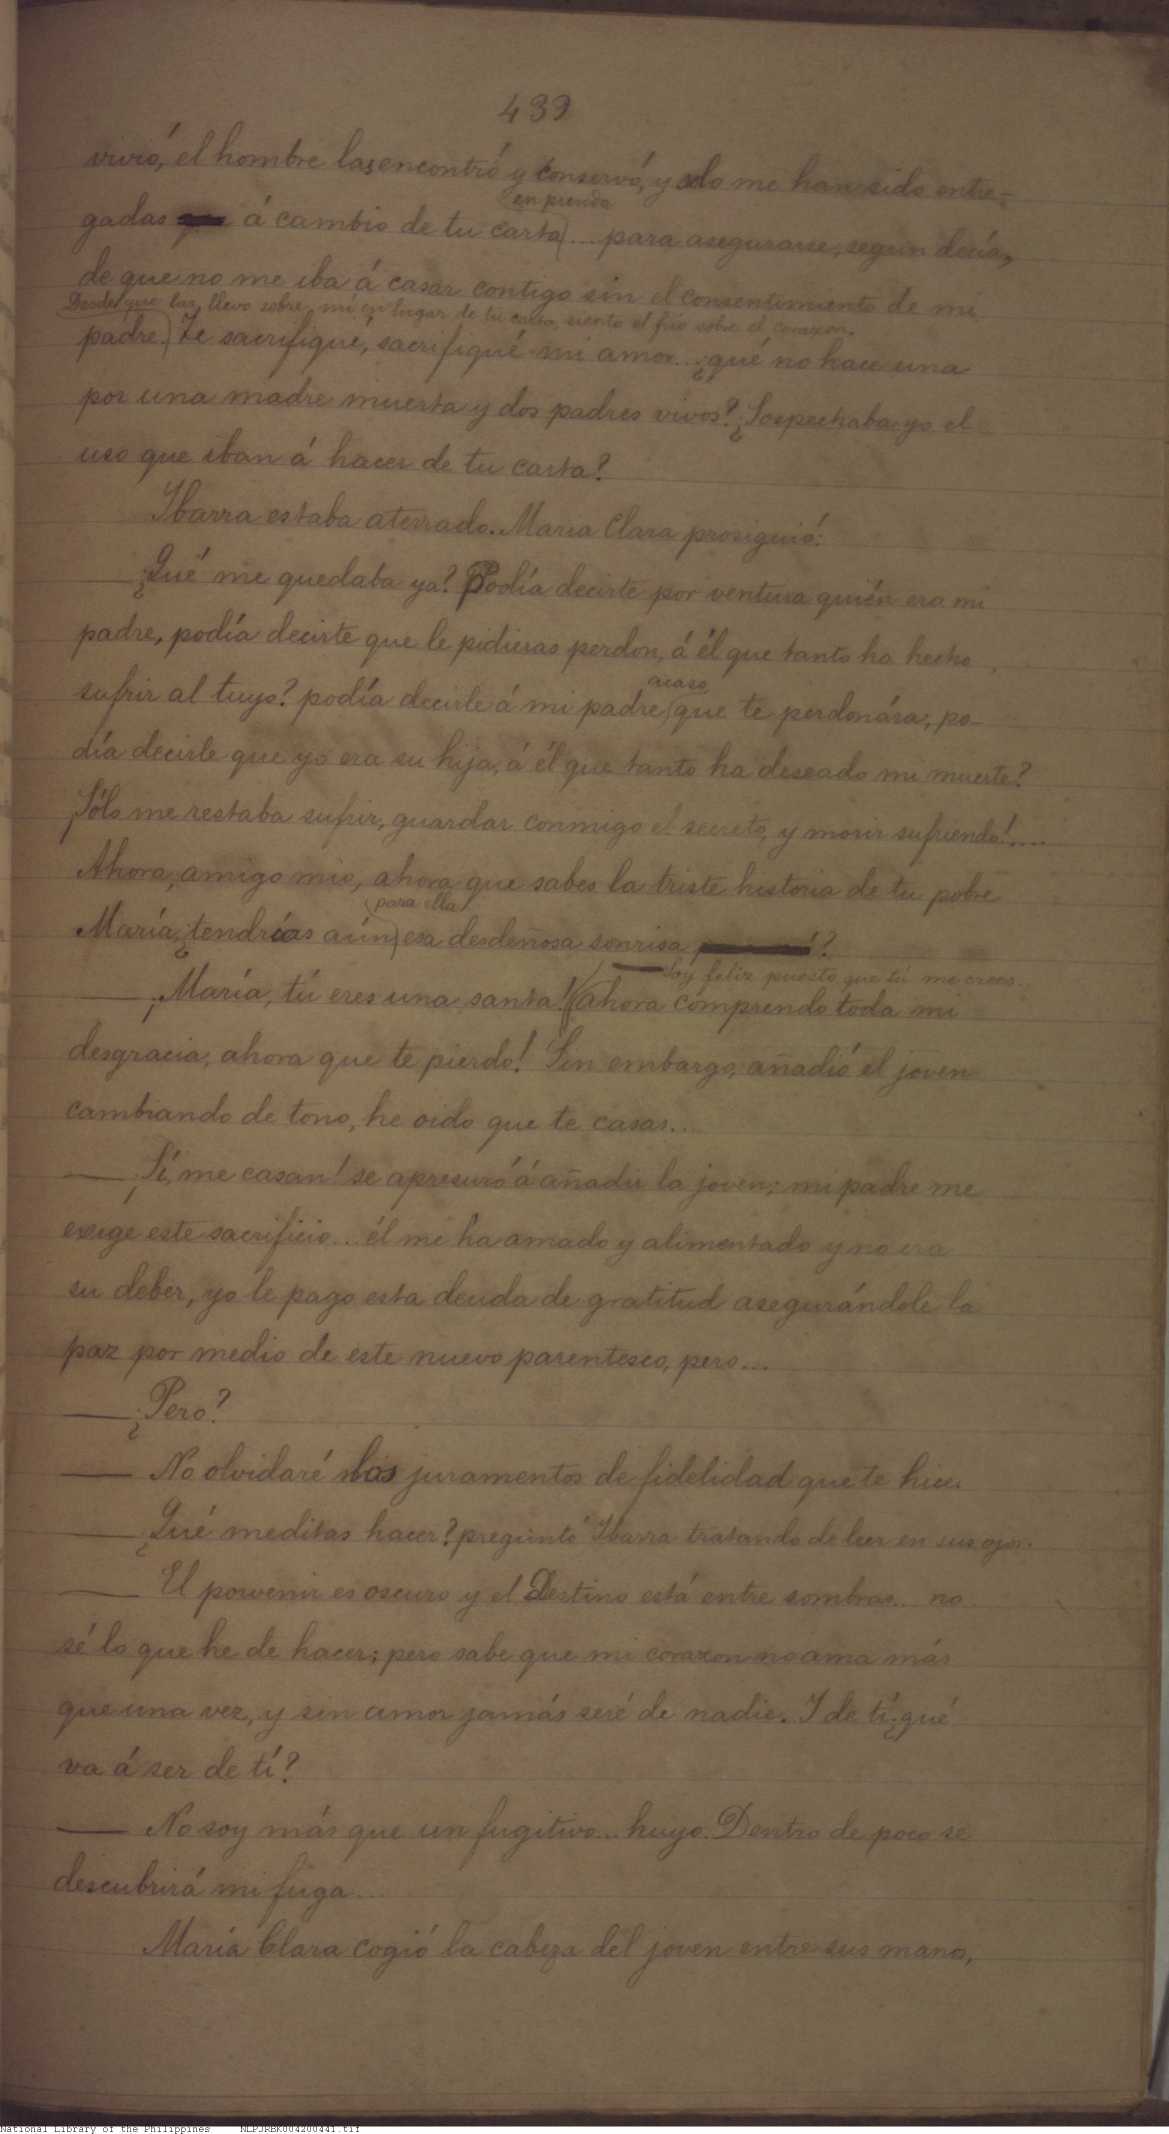 439
vivió, el hombre las encontró y conservó, y solo me han sido entre-
en prenda
gadas á cambio de tu carta).... para asegurarse, segun decía,
de que no me iba á casar contigo sin el consentimiento de mi
Desde que las llevo sobre mí en lugar de tu carta, siento el frío sobre el corazon.
padre.) Te sacrifiqué, sacrifiqué mi amor... ¿qué no hace una
por una madre muerta y dos padres vivos? ¿Sospechaba yo el
uso que iban á hacer de tu carta?
Ibarra estaba aterrado. María Clara prosiguió:
— ¿Qué me quedaba ya? Podía decirte por ventura quién era mi
padre, podía decirte que le pidieras perdon, á él que tanto ha hecho
acaso
sufrir al tuyo? podía decirle á mi padre (que te perdonára, po-
día decirle que yo era su hija, á él que tanto ha deseado mi muerte?
¡Sólo me restaba sufrir, guardar conmigo el secreto, y morir sufriendo!....
Ahora, amigo mio, ahora que sabes la triste historia de tu pobre
(para ella
María, ¿tendrías aún) esa desdeñosa sonrisa ?
— Soy feliz puesto que tú me crees.
— ¡María, tú eres una santa! (ahora comprendo toda mi
desgracia, ahora que te pierdo! Sin embargo, añadió el joven
cambiando de tono, he oido que te casas...
— ¡Sí, me casan! se apresuró á añadir la joven; mi padre me
exige este sacrificio... él me ha amado y alimentado y no era
su deber, yo le pago esta deuda de gratitud asegurándole la
paz por medio de este nuevo parentesco, pero...
— ¿Pero?
— No olvidaré los juramentos de fidelidad que te hice.
— ¿Qué meditas hacer? preguntó Ibarra tratando de leer en sus ojos.
— El porvenir es oscuro y el Destino está entre sombras.. no
sé lo que he de hacer; pero sabe que mi corazon no ama más
que una vez, y sin amor jamás seré de nadie. Y de tí, ¿qué
va á ser de tí?
— No soy más que un fugitivo... huyo. Dentro de poco se
descubrirá mi fuga...
María Clara cogió la cabeza del joven entre sus manos,
National Library of the Philippines NLPJRBK004200441.tif